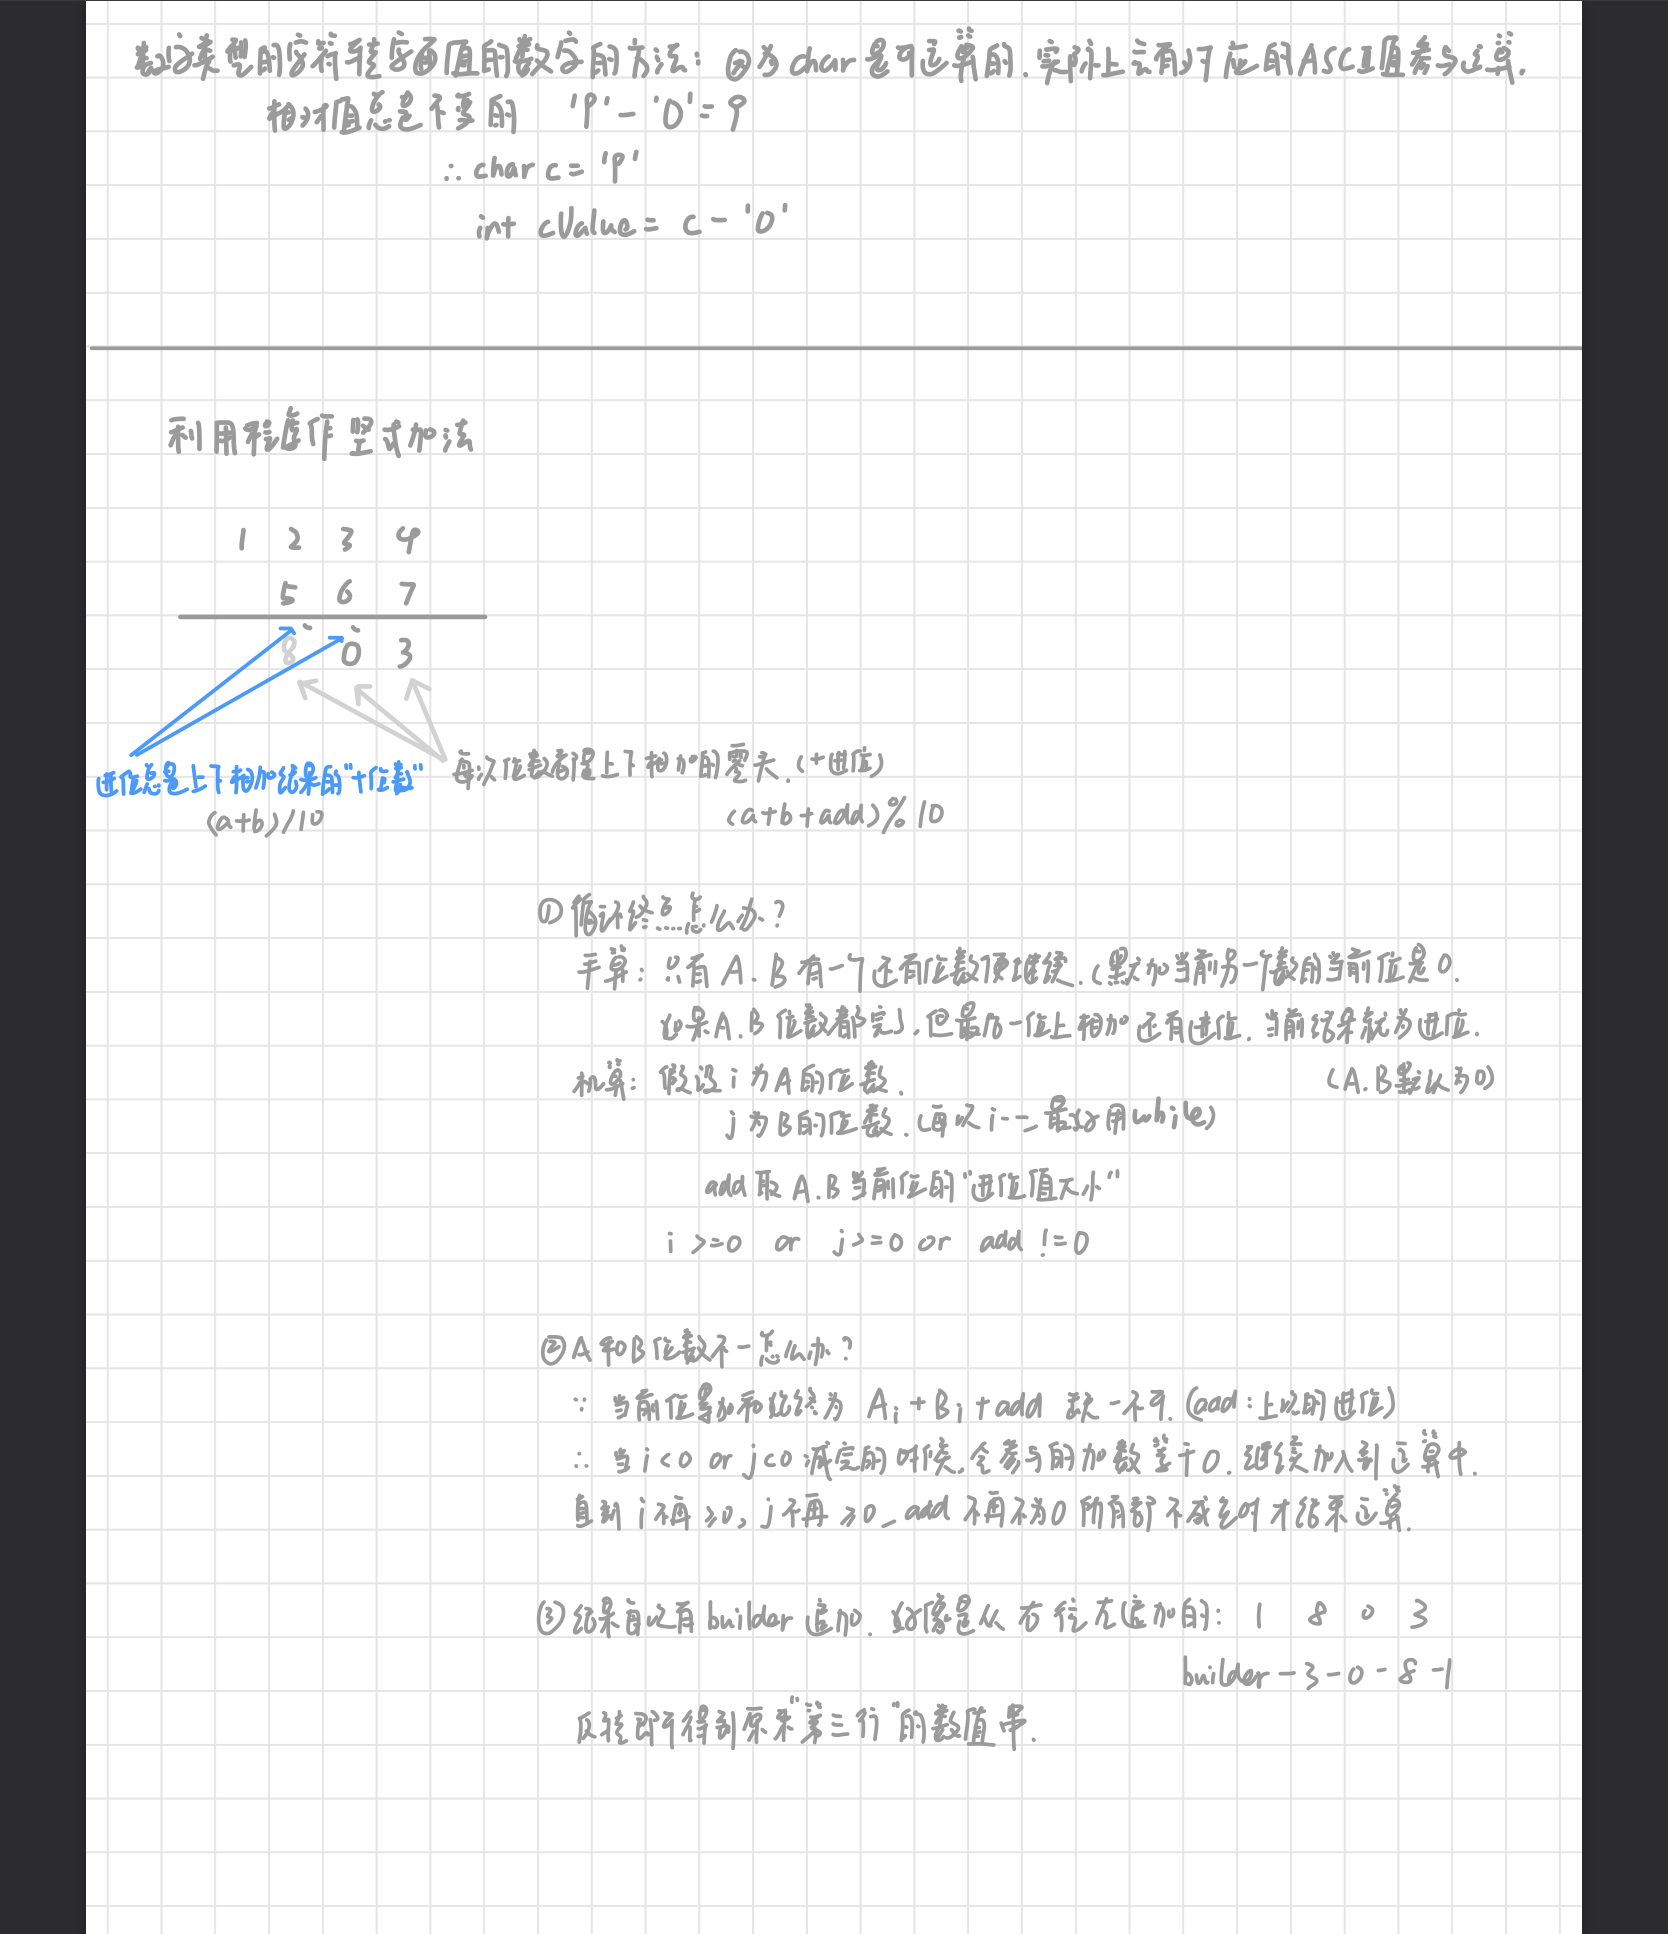 数字类型的字符转字面值的数字的方法：因为char是可运算的.实际上会有对应的ASCII值参与运算.
相对值总是不变的 '9'-'0'=9
∴ char c = '9'
int cValue = c - '0'
利用程序作竖式加法
1 2 3 4
5 6 7
8 0 3
进位总是上下相加结果的"十位数"
(a+b)/10
每次位数都是上下相加的零头.(+进位)
(a+b+add)%10
①循环终点怎么办?
手算：只有A.B有一个还有位数便继续.(默加当前另一个数的当前位是0.
如果A.B位数都完了,但最后一位上相加还有进位.当前结果就为进位.
(A.B默认为0)
机算：假设i为A的位数.
j为B的位数.(每次i--,最好用while)
add取A.B当前位的"进位值大小"
i >=0 or j>=0 or add !=0
②A和B位数不一怎么办?
∵ 当前位累加和始终为 Ai+Bi+add 缺一不可.(add:上次的进位)
∴ 当i<0 or j<0 减完的时候,令参与的加数等于0.继续加入到运算中.
直到i不再≥0,j不再≥0,add不再不为0 所有都不成立时才结束运算.
③结果每次有builder追加.好像是从右往左追加的: 1 8 0 3
builder-3-0-8-1
反转即可得到原来"第三行"的数值串.